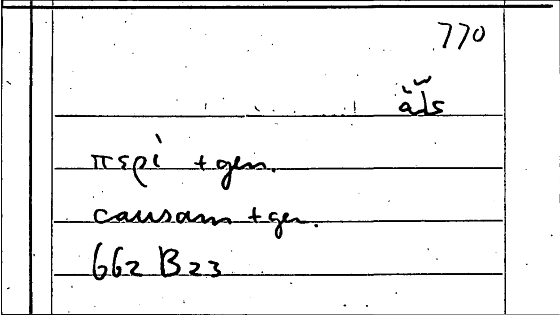 770
περὶ + gen.
causam + gen.
662 B23